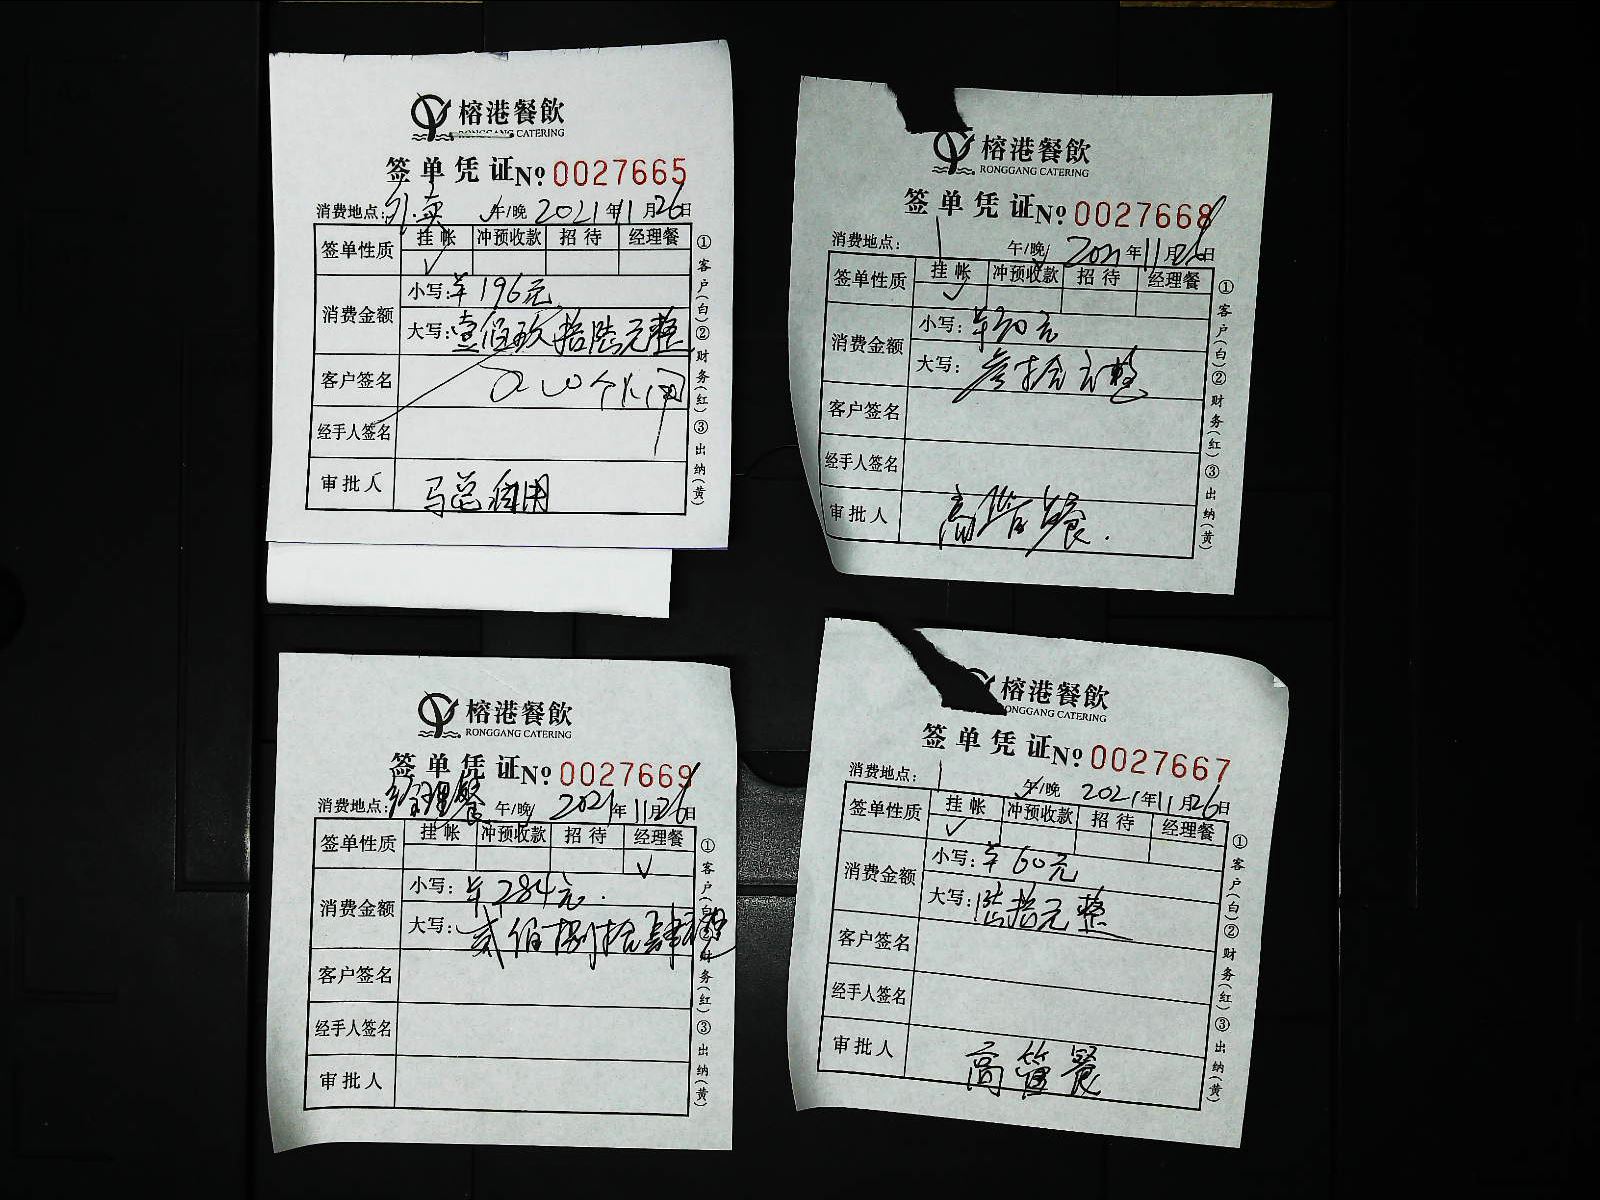 榕港餐飲
RONGGANG CATERING
签单凭证 No 0027665
消费地点: 外卖 午/晚 2021年11月26日
签单性质 挂帐 冲预收款 招待 经理餐
✓
消费金额 小写: ¥196元
大写: 壹佰玖拾陆元整
客户签名
经手人签名
审批人 马总自用
①客户(白)②财务(红)③出纳(黄)
榕港餐飲
RONGGANG CATERING
签单凭证 No 0027668
消费地点: 午/晚 2021年11月26日
签单性质 挂帐 冲预收款 招待 经理餐
✓
消费金额 小写: ¥30元
大写: 叁拾元整
客户签名
经手人签名
审批人 高管餐.
①客户(白)②财务(红)③出纳(黄)
榕港餐飲
RONGGANG CATERING
签单凭证 No 0027669
消费地点: 经理餐 午/晚 2021年11月26日
签单性质 挂帐 冲预收款 招待 经理餐
✓
消费金额 小写: ¥284元.
大写: 贰佰捌拾肆元整
客户签名
经手人签名
审批人
①客户(白)②财务(红)③出纳(黄)
榕港餐飲
RONGGANG CATERING
签单凭证 No 0027667
消费地点: 午/晚 2021年11月26日
签单性质 挂帐 冲预收款 招待 经理餐
✓
消费金额 小写: ¥60元
大写: 陆拾元整
客户签名
经手人签名
审批人 高管餐
①客户(白)②财务(红)③出纳(黄)